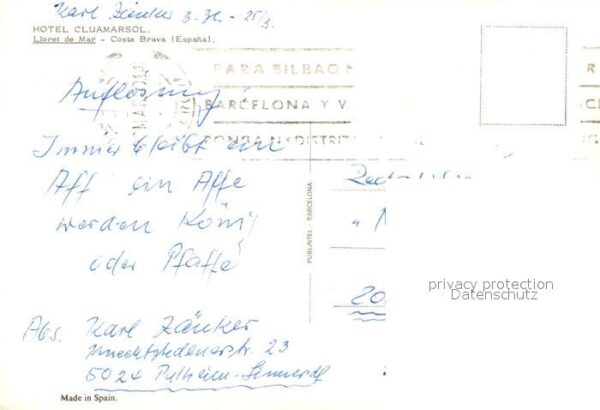 Karl Zänker 3. - 25/3.
HOTEL CLUAMARSOL.
Lloret de Mar - Costa Brava (España).
PARA BILBAO
BARCELONA Y V
PONGA Nº DISTRIT
Auflösung
Immer bleibt ein
Aff' ein Affe
werden König
oder Pfaffe
PUBLINTEL - BARCELONA
privacy protection
Datenschutz
Abs. Karl Zänker
Knechtstedenerstr. 23
5024 Pulheim-Sinnersdf
Made in Spain.